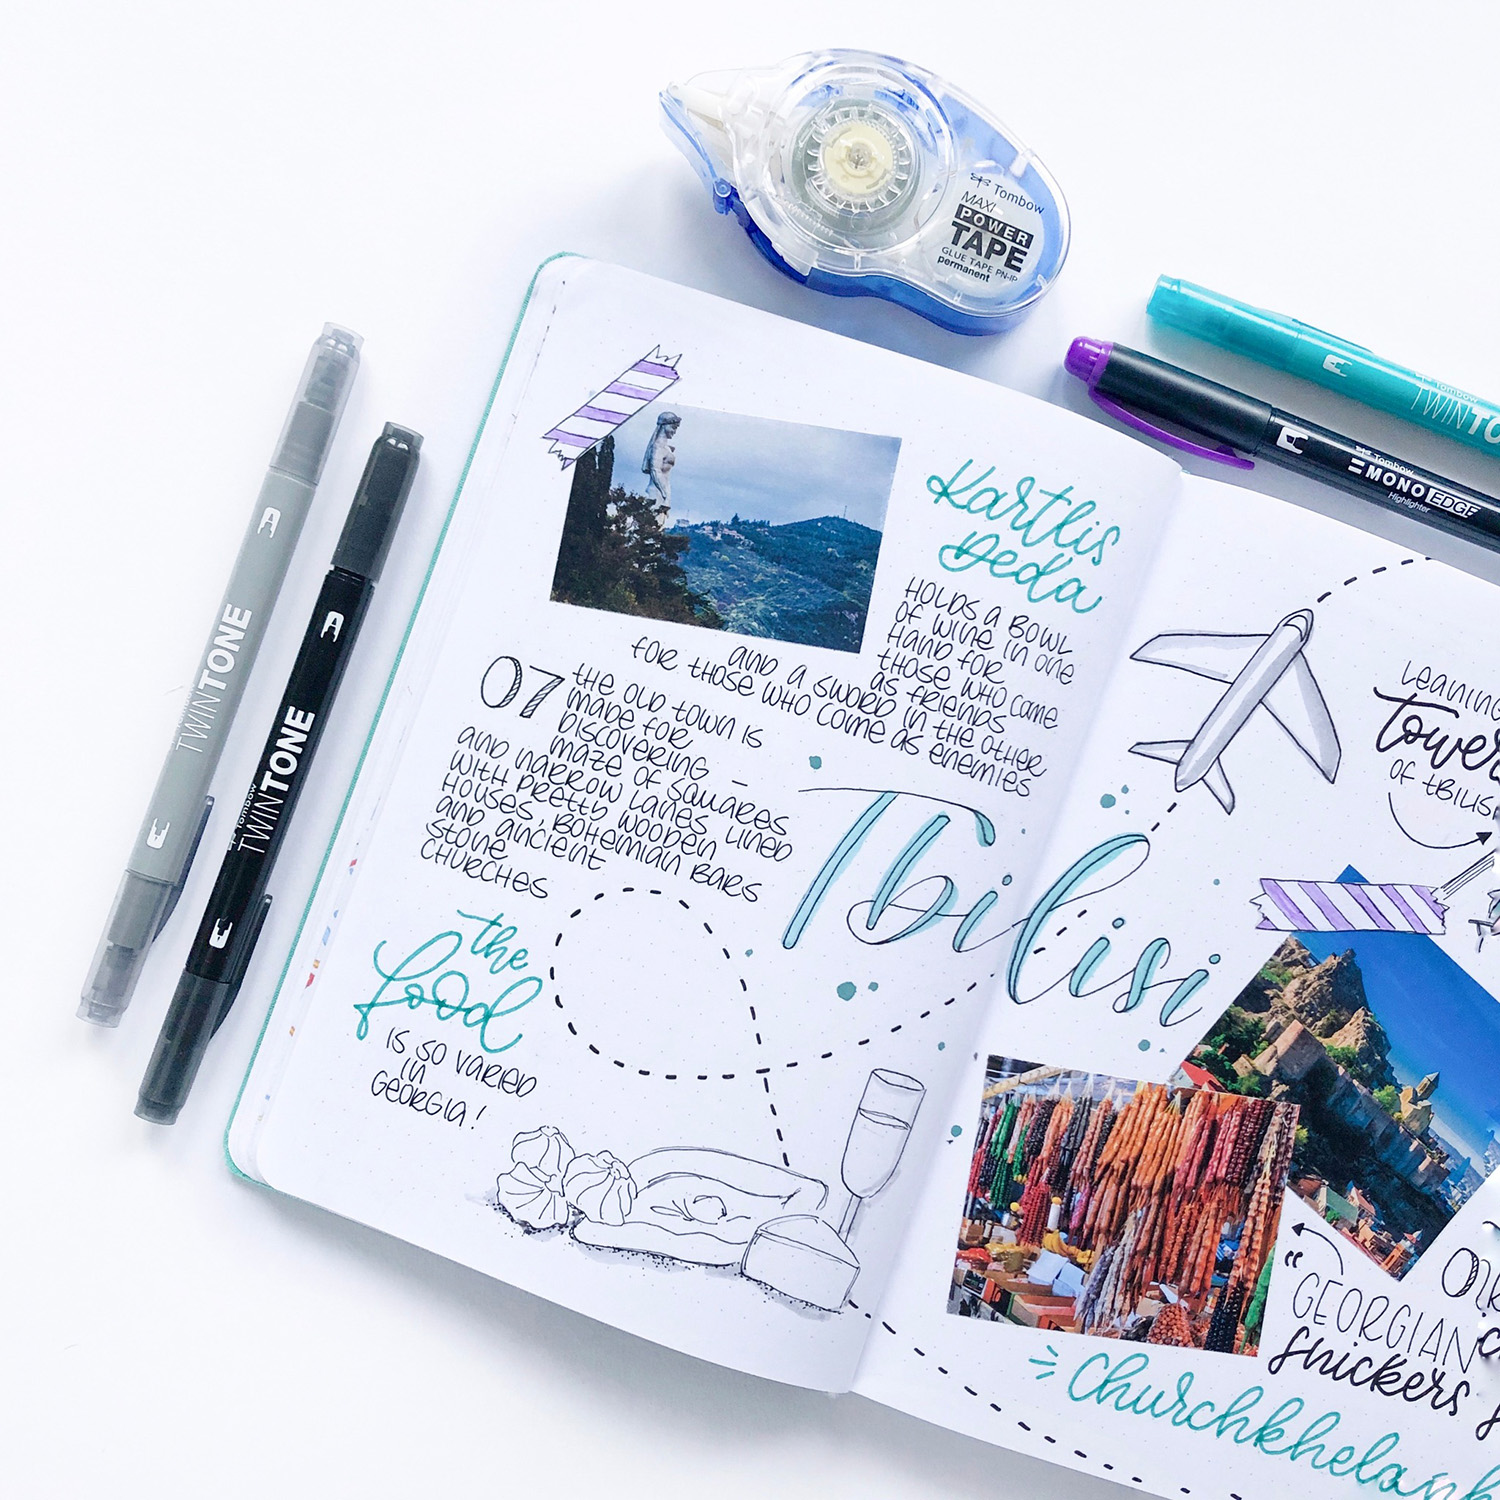 Tombow
MAXI
POWER
TAPE
GLUE TAPE PN-IP
permanent
Tombow
TWINTONE
Tombow
MONO EDGE
Highlighter
A
TWINTONE
A
Tombow
TWINTONE
Kartlis
Deda
HOLDS A BOWL
OF WINE IN ONE
HAND FOR
THOSE WHO COME
AS FRIENDS
AND A SWORD IN THE OTHER
FOR THOSE WHO COME AS ENEMIES
07
THE OLD TOWN IS
MADE FOR
DISCOVERING –
MAZE OF SQUARES
AND NARROW LANES LINED
WITH PRETTY WOODEN
HOUSES, BOHEMIAN BARS
AND ANCIENT
STONE
CHURCHES
Tbilisi
the
food
IS SO VARIED
IN
GEORGIA!
LEANING
Tower
OF TBILISI
"GEORGIAN
snickers
Churchkhela